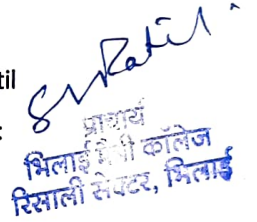 til
:
प्राचार्य
भिलाई मैत्री कॉलेज
रिसाली सेक्टर, भिलाई